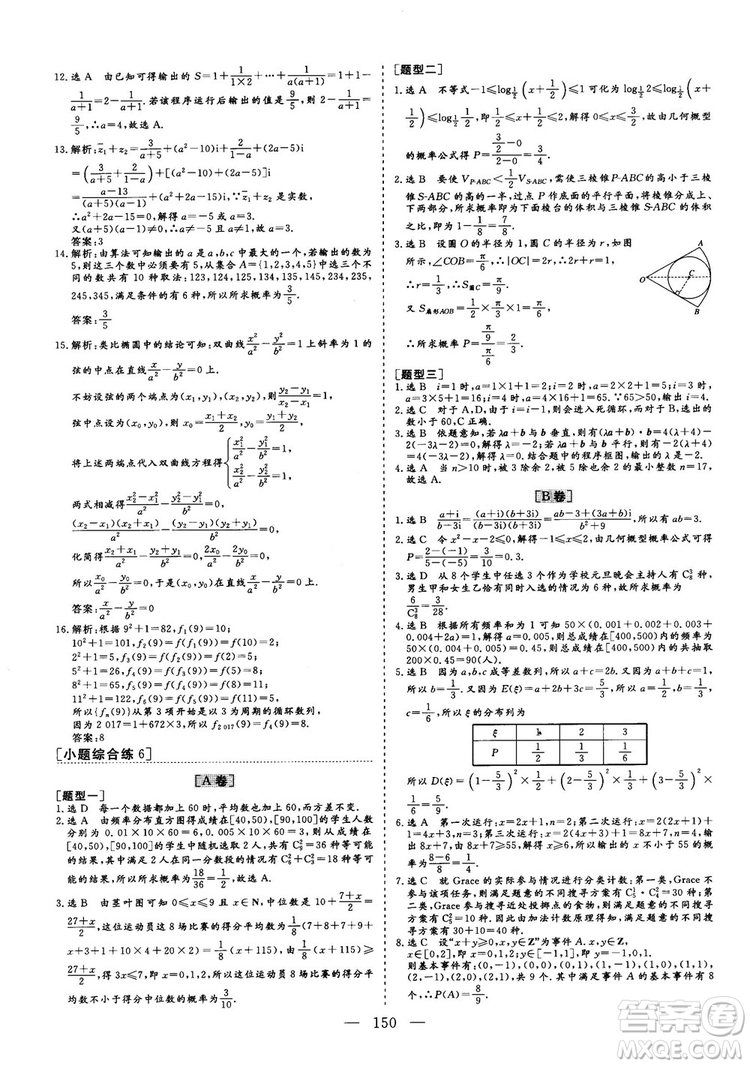 12. 选 A 由已知可得输出的 S=1+1/(1×2)+…+1/(a(a+1))=1+
a/(a+1). 若该程序运行后输出的值是 9/5, 则 2-1/(a+1)=
9/5, ∴a=4, 故选 A.
13. 解析: z̄₁+z₂=3/(a+5)+(a²-10)i+2/(1-a)+(2a-5)i
=(3/(a+5)+2/(1-a))+[(a²-10)+(2a-5)]i
=(a-13)/((a+5)(a-1))+(a²+2a-15)i,
∵z̄₁+z₂是实数,
∴a²+2a-15=0, 解得 a=-5 或 a=3.
又(a+5)(a-1)≠0, ∴a≠-5 且 a≠1, 故 a=3.
答案:3
14. 解析: 由算法可知输出的 a 是 a,b,c 中最大的一个, 若输出的数为
5, 则这三个数中必须要有 5, 从集合 A={1,2,3,4,5}中选三个不
同的数共有 10 种取法:123,124,125,134,135,145,234,235,
245,345, 满足条件的有 6 种, 所以所求概率为 3/5.
答案: 3/5
15. 解析: 类比椭圆中的结论可知: 双曲线 x²/a²-y²/b²=1 上斜率为 1 的
弦的中点在直线 x/a²-y/b²=0 上.
不妨设弦的两个端点为(x₁,y₁),(x₂,y₂), 则 (y₂-y₁)/(x₂-x₁)=1,
弦中点设为(x₀,y₀), 则 x₀=(x₁+x₂)/2, y₀=(y₁+y₂)/2,
将上述两端点代入双曲线方程得 { x₁²/a²-y₁²/b²=1,
x₂²/a²-y₂²/b²=1,
两式相减得 (x₂²-x₁²)/a²-(y₂²-y₁²)/b²=0,
(x₂-x₁)(x₂+x₁)/a²-(y₂-y₁)(y₂+y₁)/b²=0,
化简得 x₀/a²-y₀/b²=0,
所以 x/a²-y/b²=0.
16. 解析: 根据 9²+1=82, f₁(9)=10;
10²+1=101, f₂(9)=2;
2²+1=5, f₃(9)=5;
5²+1=26, f₄(9)=8;
8²+1=65, f₅(9)=11;
11²+1=122, f₆(9)=5;
所以{fₙ(9)}从第 3 项开始是以 3 为周期的循环数列.
因为 2 017=1+672×3, 所以 f₂ ₀₁₇(9)=8.
答案:8
[小题综合练 6]
[A 卷]
[题型一]
1. 选 D 每一个数据都加上 60, 平均数也加上 60, 而方差不变.
2. 选 A 由频率分布直方图得成绩在[40,50),[90,100]的学生人数
分别为 0.01×10×60=6, 0.005×10×60=3, 则从成绩在
[40,50),[90,100]的学生中随机选取两人, 共有 C²₉=36 种可能
的结果, 其中两人在同一分数段的情况有 C²₆+C²₃=18 种可能
的结果, 故所求概率为 18/36=1/2, 故选 A.
3. 选 B 由茎叶图可知 0≤x≤9 且 x∈N, 中位数是 (10+7+x)/2
=(27+x)/2, 这位运动员 8 场比赛的得分平均数为 1/8(7+8+7+9+
x+3+1+10×4+20×2)=1/8(x+115), 由 1/8(x+115)≥
(27+x)/2, 得 3x≤7, 即 x=0,1,2, 所以这位运动员 8 场比赛的得分平
均数不小于得分中位数的概率为 3/10.
[题型二]
1. 选 A 不等式-1≤log½(x+1/2)≤1 可化为 log½2≤log½(x+
1/2)≤log½ 1/2, 即 1/2≤x+1/2≤2, 解得 0≤x≤3/2, 故由几何概型
的概率公式得 P=(3/2-0)/(2-0)=3/4.
2. 选 A 要使 V_P-ABC<1/2V_S-ABC, 需使三棱锥P-ABC的高小于三棱
锥S-ABC的高的一半, 过点 P 作底面的平行平面, 将棱锥分成上、
下两部分, 所求概率即为下面棱台的体积与三棱锥S-ABC的体积
之比, 即为 1-1/8=7/8.
3. 选 B 设圆 O 的半径为 1, 圆 C 的半径为 r, 如图
所示, ∠COB=π/6, ∴|OC|=2r, ∴2r+r=1,
∴r=1/3, ∴S圆C=π/9.
又 S扇形AOB=1/2×π/3×1=π/6,
∴所求概率 P=(π/9)/(π/6)=2/3.
A
O
C
B
[题型三]
1. 选 B i=1 时, a=1×1+1=2; i=2 时, a=2×2+1=5; i=3 时,
a=3×5+1=16; i=4 时, a=4×16+1=65.
2. 选 C 对于 A,D, 由于 i=1, 则会进入死循环, 而对于 B, 选出的
数小于 60, C 正确.
3. 选 B 依题意知, 若 λa+b 与 b 垂直, 则有(λa+b)·b=4(λ+4)
-3(-3λ-2)=0, 解得 λ=-2; 若 λa+b 与 b 平行, 则有-2(λ+4)
=4(-3λ-2), 解得 λ=0. 结合题中的程序框图, 故选 B.
4. 选 A 当 n>10 时, 被 3 除余 2, 被 5 除也余 2 的最小整数 n=17,
故选 A.
[B 卷]
1. 选 B (a+i)/(b-3i)=(a+i)(b+3i)/((b-3i)(b+3i))=(ab-3+(3a+b)i)/(b²+9), 所以有 ab=3.
2. 选 C 令 x²-x-2≤0, 解得-1≤x≤2, 由几何概型概率公式可得
P=(2-(-1))/(5-(-5))=3/10=0.3.
3. 选 D 从 8 个学生中任选 2 个作为学校元旦晚会主持人有 C²₈种,
男生甲和女生乙恰好有且只有一人被选中有 C¹₆种, 故所求概率为
6/C²₈=6/28=3/14.
4. 选 A 根据所有频率和为 1 可知, 50×(0.001+0.003+0.004×2+
0.004+2a)=1, 解得 a=0.005, 则总成绩在[400,500)内的频率为
50×(0.005+0.004)=0.45, 所以总成绩在[400,500)内共抽取
200×0.45=90(人).
5. 选 A 因为 a,b,c 成等差数列, 所以 a+c=2b, 又因为 a+b+c=1,
所以 b=1/3, 又因为 E(ξ)=a+2b+3c=a+3c+2/3=5/3, 所以 a=1/2,
c=1/6, 所以 ξ 的分布列为
ξ 1 2 3
P 1/2 1/3 1/6
所以 D(ξ)=(1-5/3)²×1/2+(2-5/3)²×1/3+(3-5/3)²×1/6=5/9.
6. 选 A 第一次运行: x=2x+1, n=2; 第二次运行: x=2×(2x+1)+
1=4x+3, n=3; 第三次运行: x=2×(4x+3)+1=8x+7, n=4, 输出
8x+7, 由题意可知 8x+7≥55, 解得 x≥6, 故输出的 x 不小于 55 的
概率为 (8-6)/(8-1)=2/7.
7. 选 C 就 Grace 的实际参与情况进行分类计数: 第一类, Grace 不
参与该项任务, 则满足题意的不同搜寻方案有 C¹₅·C²₄=30 种; 第
二类, Grace 参与搜寻近处投掷点的食物, 则满足题意的不同搜寻
方案有 C²₅=10 种. 因此由加法计数原理得知, 满足题意的不同搜
寻方案有 30+10=40 种.
8. 选 C 设“x+y≥0, x,y∈Z”为事件 A, x,y∈Z,
x∈[0,2], y∈[-1,1], 即 x=0,1,2; y=-1,0,1.
则基本事件有(0,-1),(0,0),(0,1),(1,-1),(1,0),(1,1),
(2,-1),(2,0),(2,1)共 9 个, 其中满足 A 的基本事件有 8
个, ∴P(A)=8/9.
— 150 —
答案圈
MXQE.COM